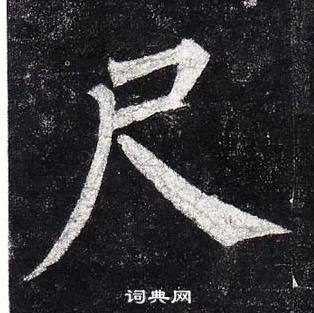 尺
词典网